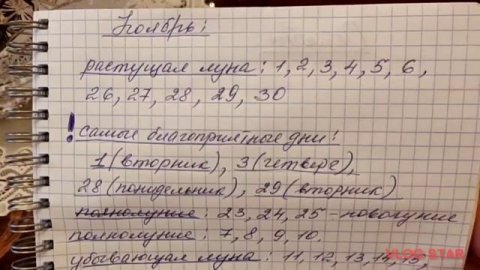 Ноябрь:
растущая луна: 1, 2, 3, 4, 5, 6,
26, 27, 28, 29, 30
! Самые благоприятные дни!
1 (вторник), 3 (четверг),
28 (понидельник), 29 (вторник)
полнолуние: 23, 24, 25 - новолуние
полнолуние: 7, 8, 9, 10.
убывающая луна: 11, 12, 13, 14, 15,
VLOG STAR